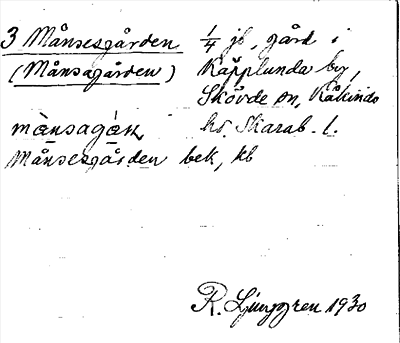 3 Månsesgården 1/4 jb, gård i
(Månsagården) Käpplunda by,
Skövde sn, Kåkinds
mànsagán hd. Skarab. l.
Månsesgården bek, kb
R. Ljunggren 1930